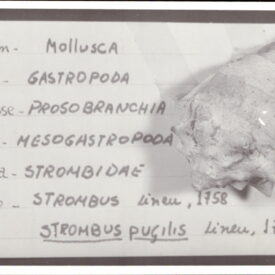 m - MOLLUSCA
- GASTROPODA
se - PROSOBRANCHIA
- MESOGASTROPODA
- STROMBIDAE
- STROMBUS Lineu, 1758
STROMBUS pugilis Lineu, 1